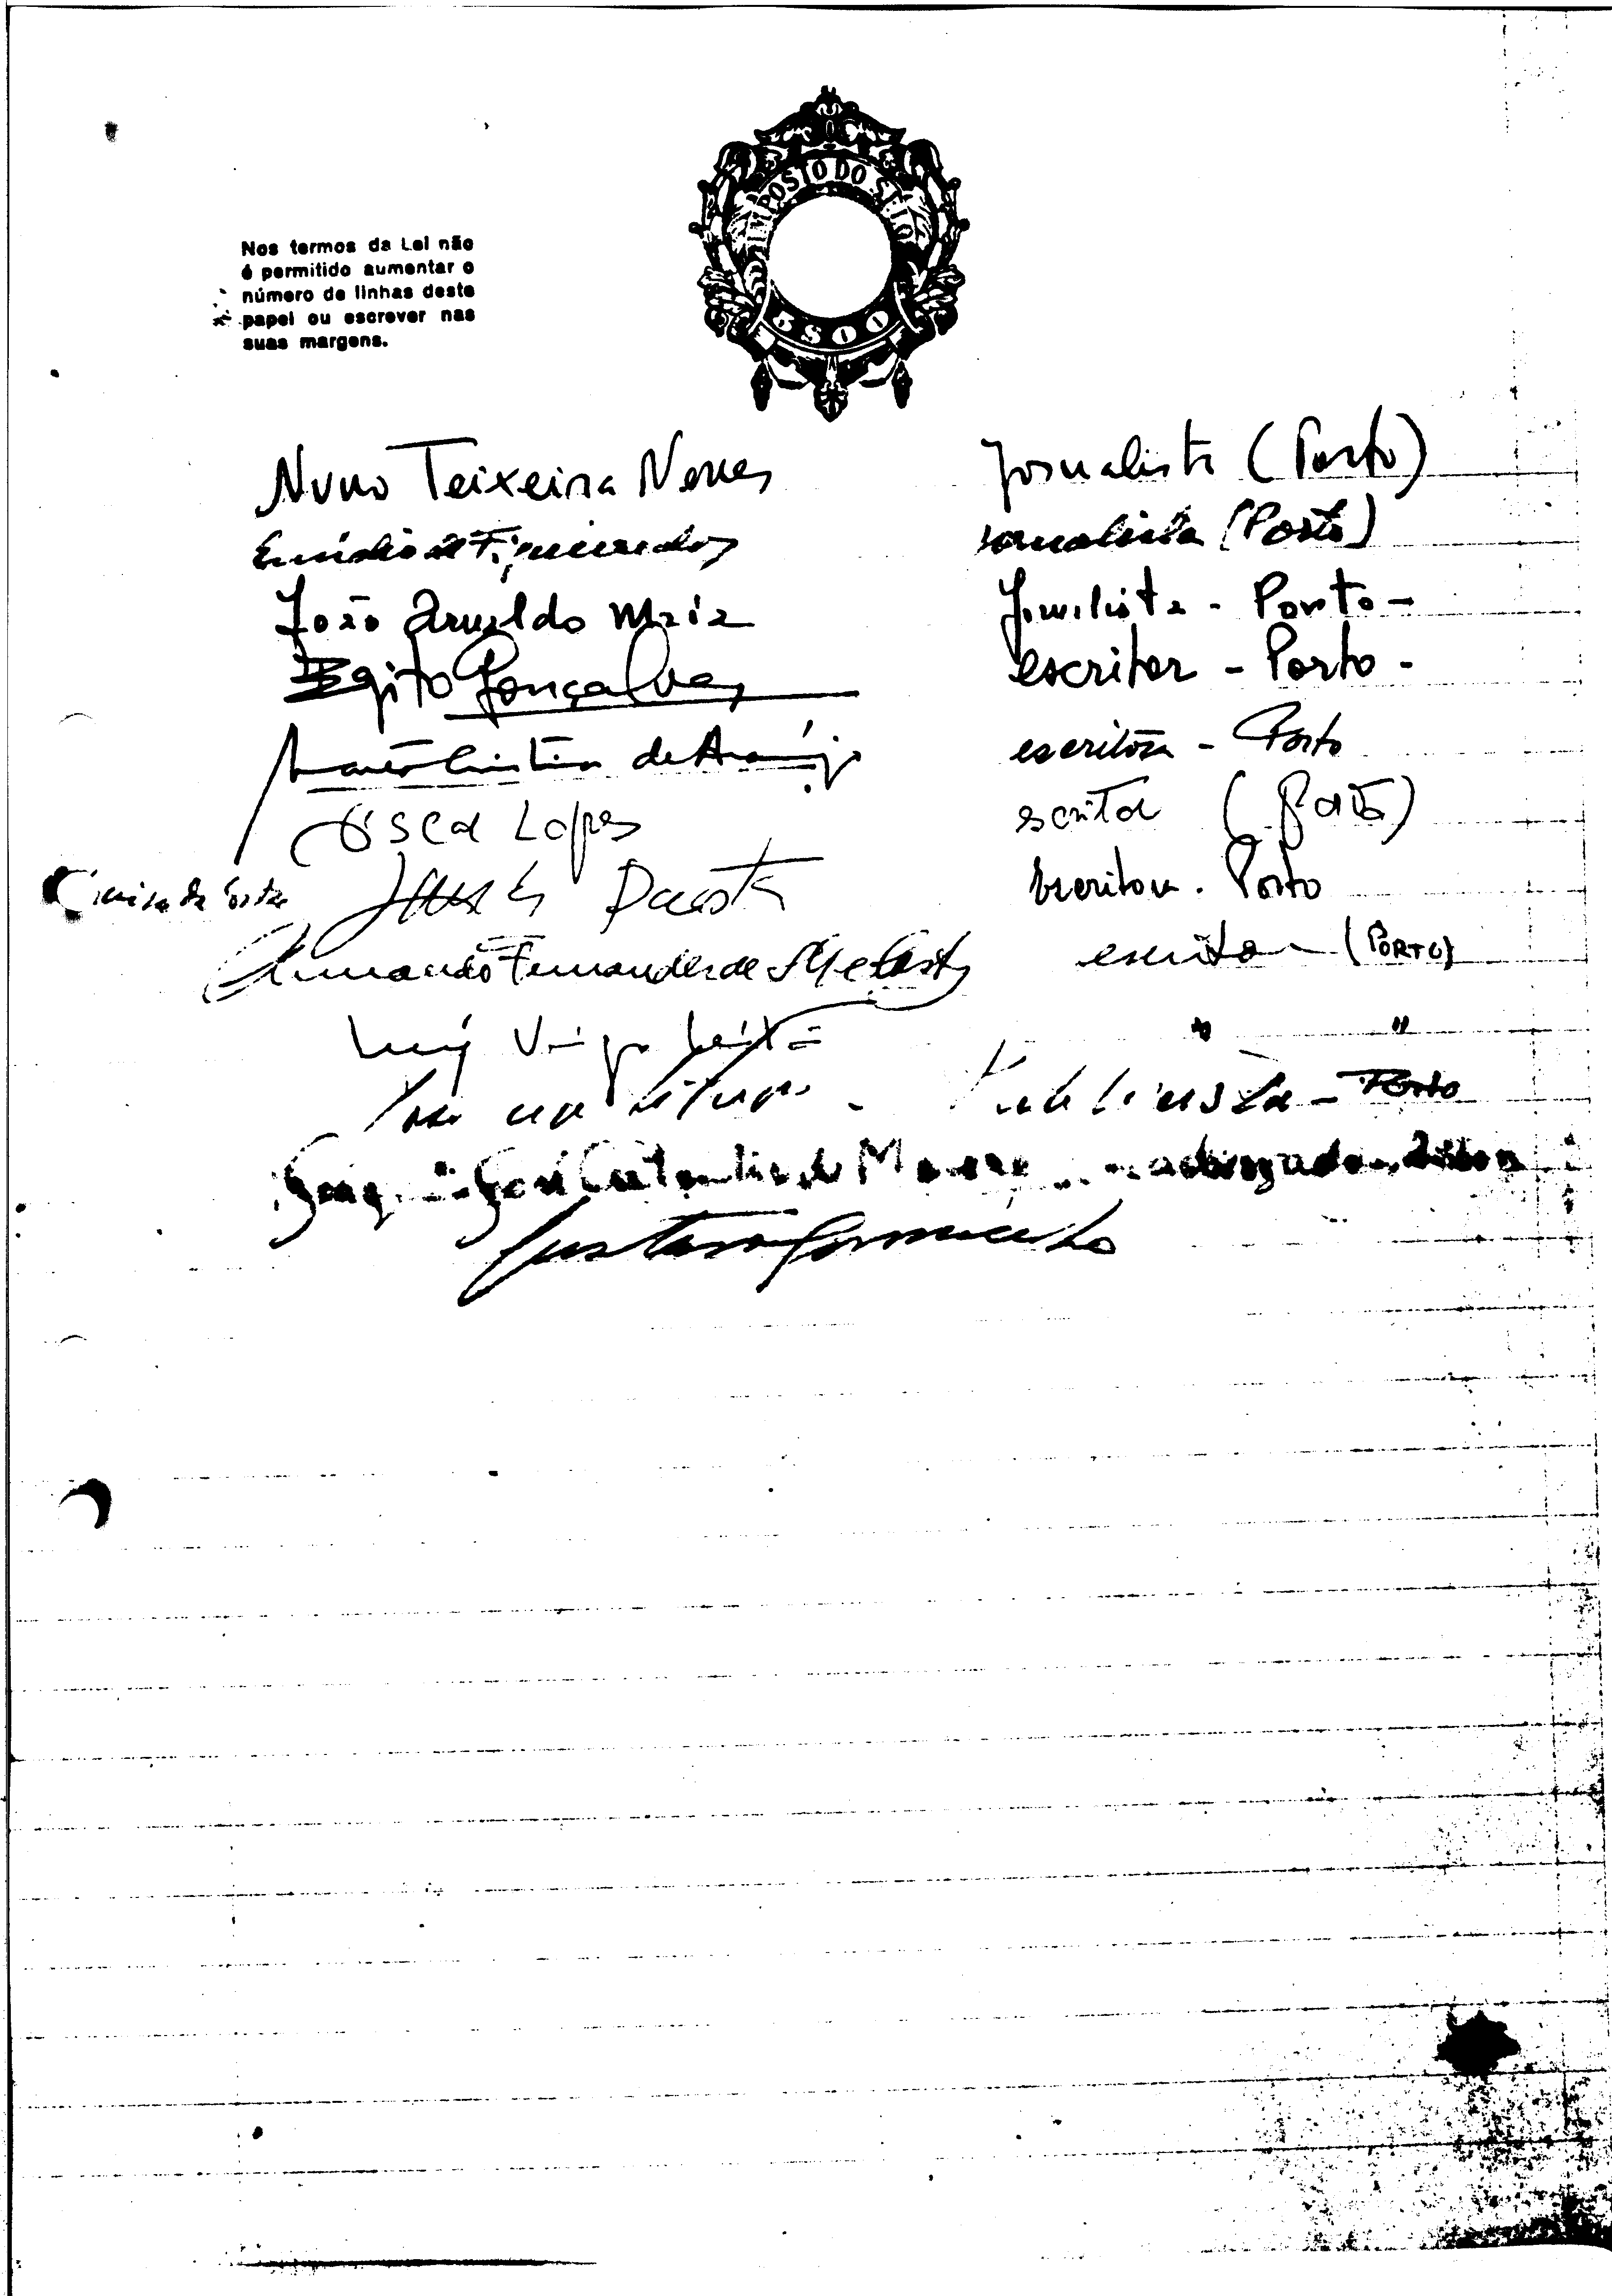 IMPOSTO DO SELO
5$00
Nos termos da Lei não
é permitido aumentar o
número de linhas deste
papel ou escrever nas
suas margens.
Nuno Teixeira Neves Jornalista (Porto)
Emídio de Figueiredo jornalista (Porto)
João Arnaldo Maia Jornalista - Porto -
Egito Gonçalves escritor - Porto -
de Araújo escritora - Porto
Óscar Lopes escritor (Porto)
escritora. Porto
Armando Fernandes de escritor - (PORTO)
Luís Veiga Leitão " "
Publicista - Porto
de advogado
Gustavo Soromenho